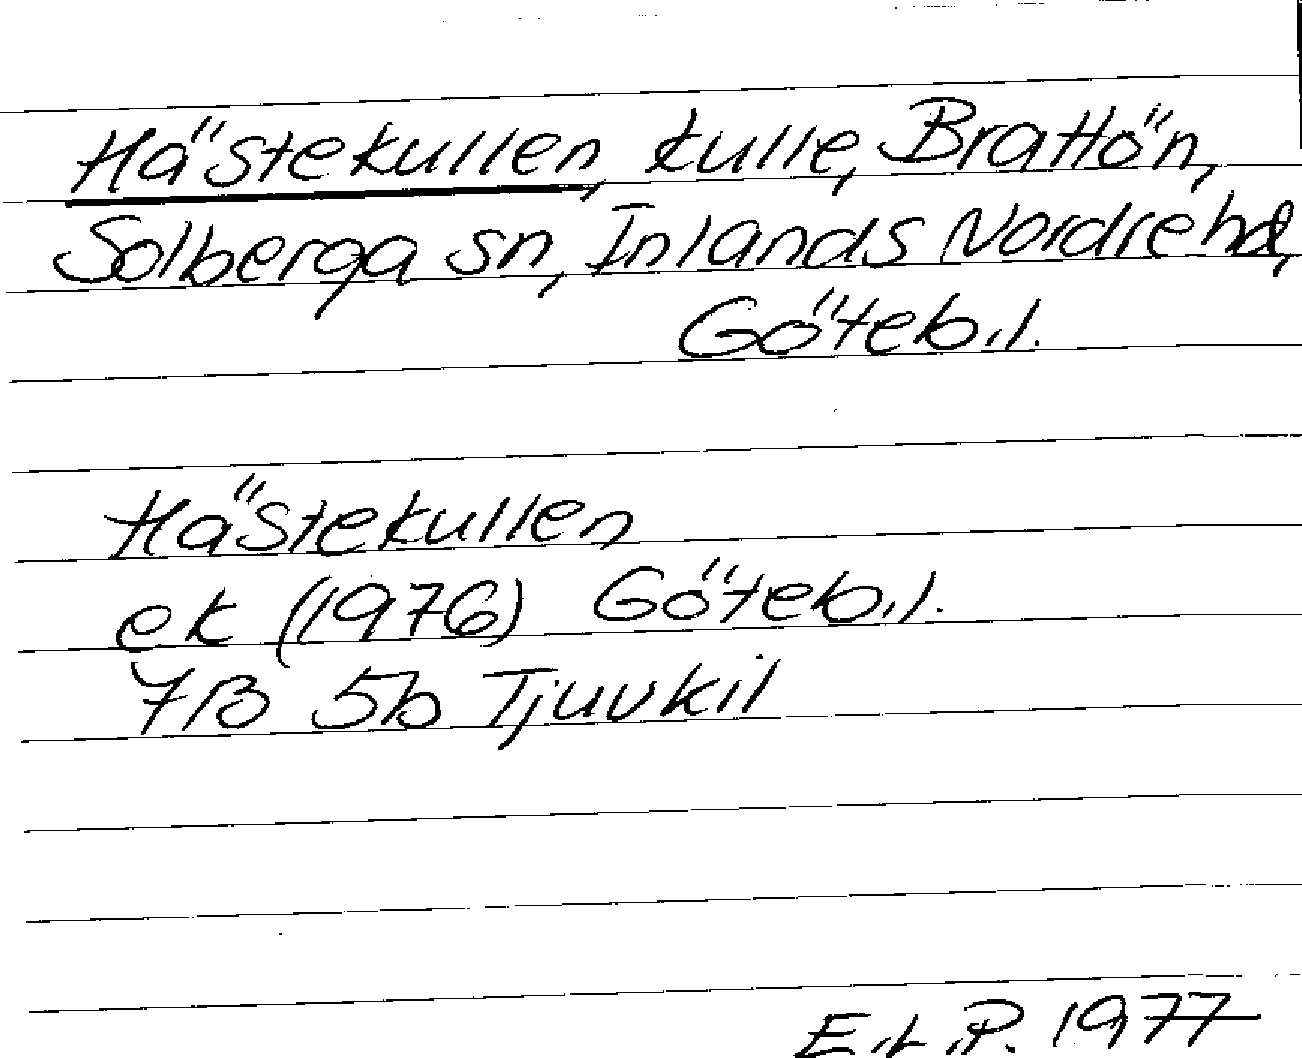 Hästekullen, kulle, Brattön,
Solberga sn, Inlands Nordre hd,
Göteb.l.
Hästekullen
ek (1976) Göteb.l.
7B 5b Tjuvkil
E.L.P. 1977